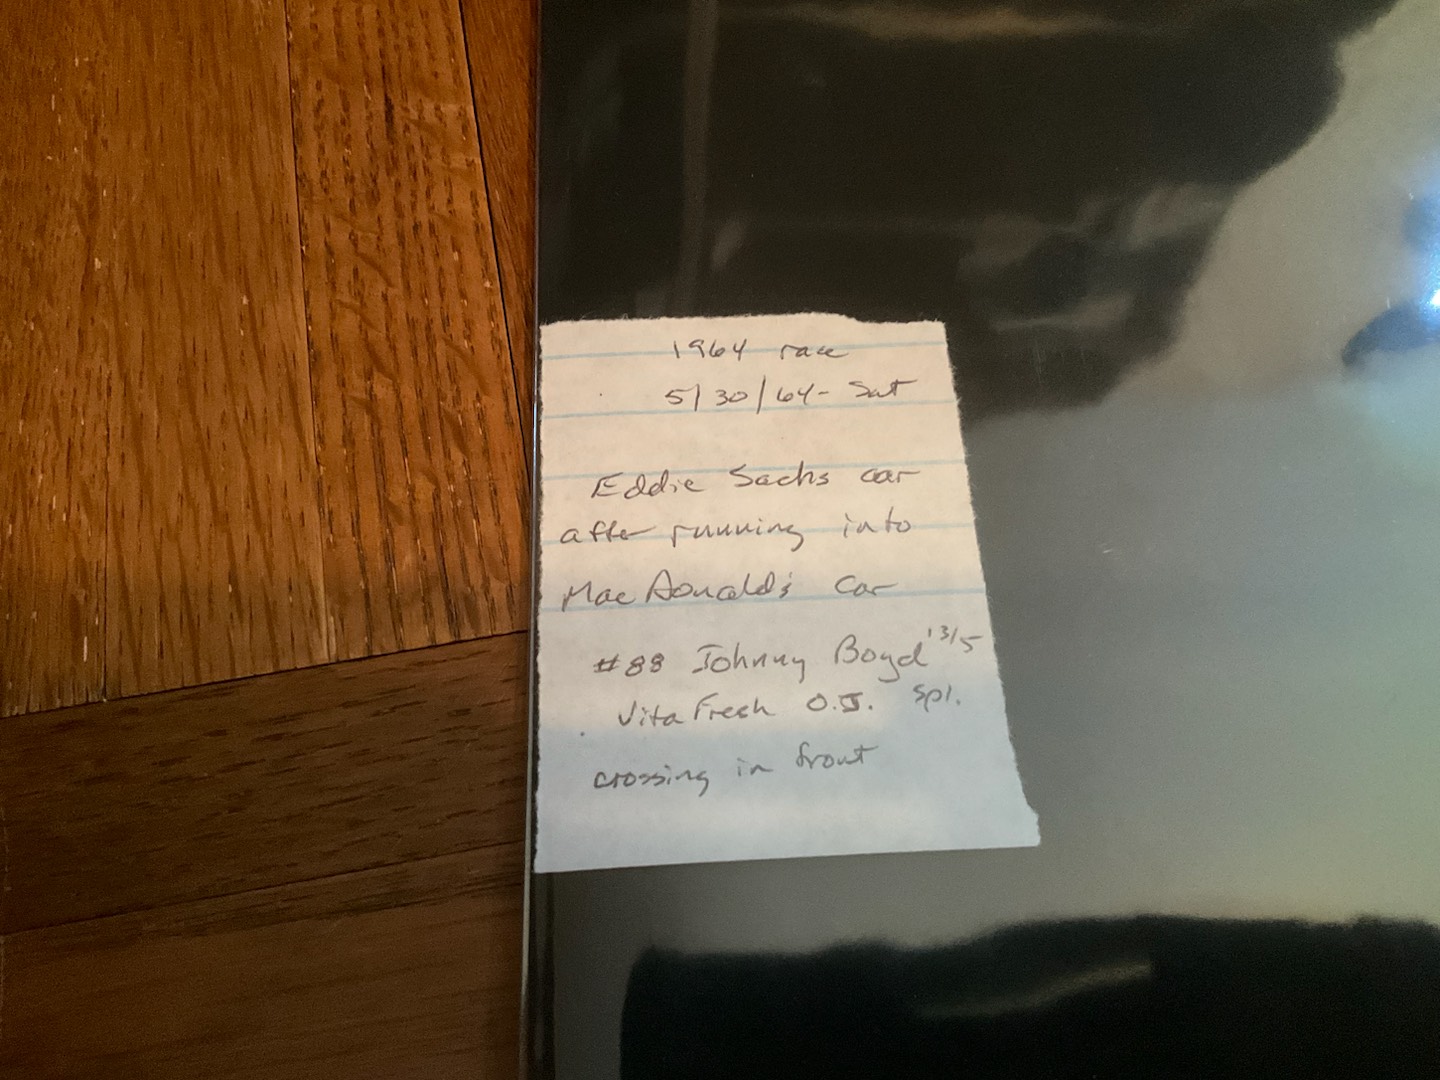 1964 race
5/30/64- Sat
Eddie Sachs car
after running into
MacDonald's car
#88 Johnny Boyd '3/5
Vita Fresh O.J. Spl.
crossing in front